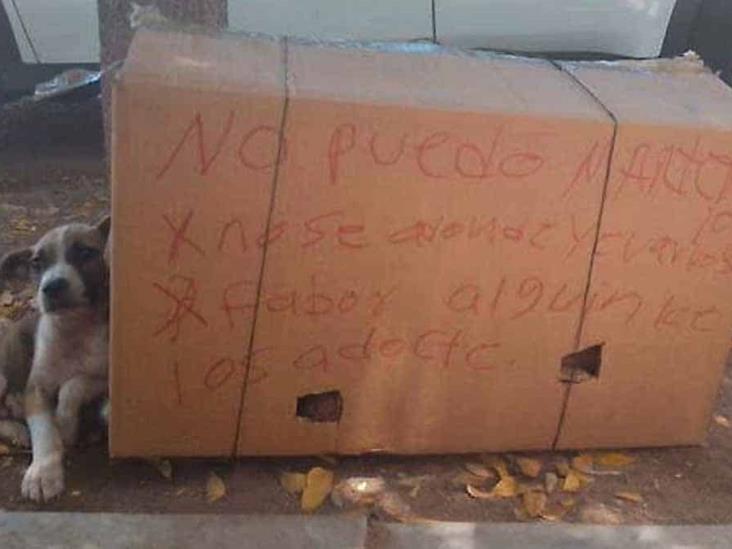 No puedo MANTE
X no se adonde llevarlos
X fabor alguin ke
los adocte.